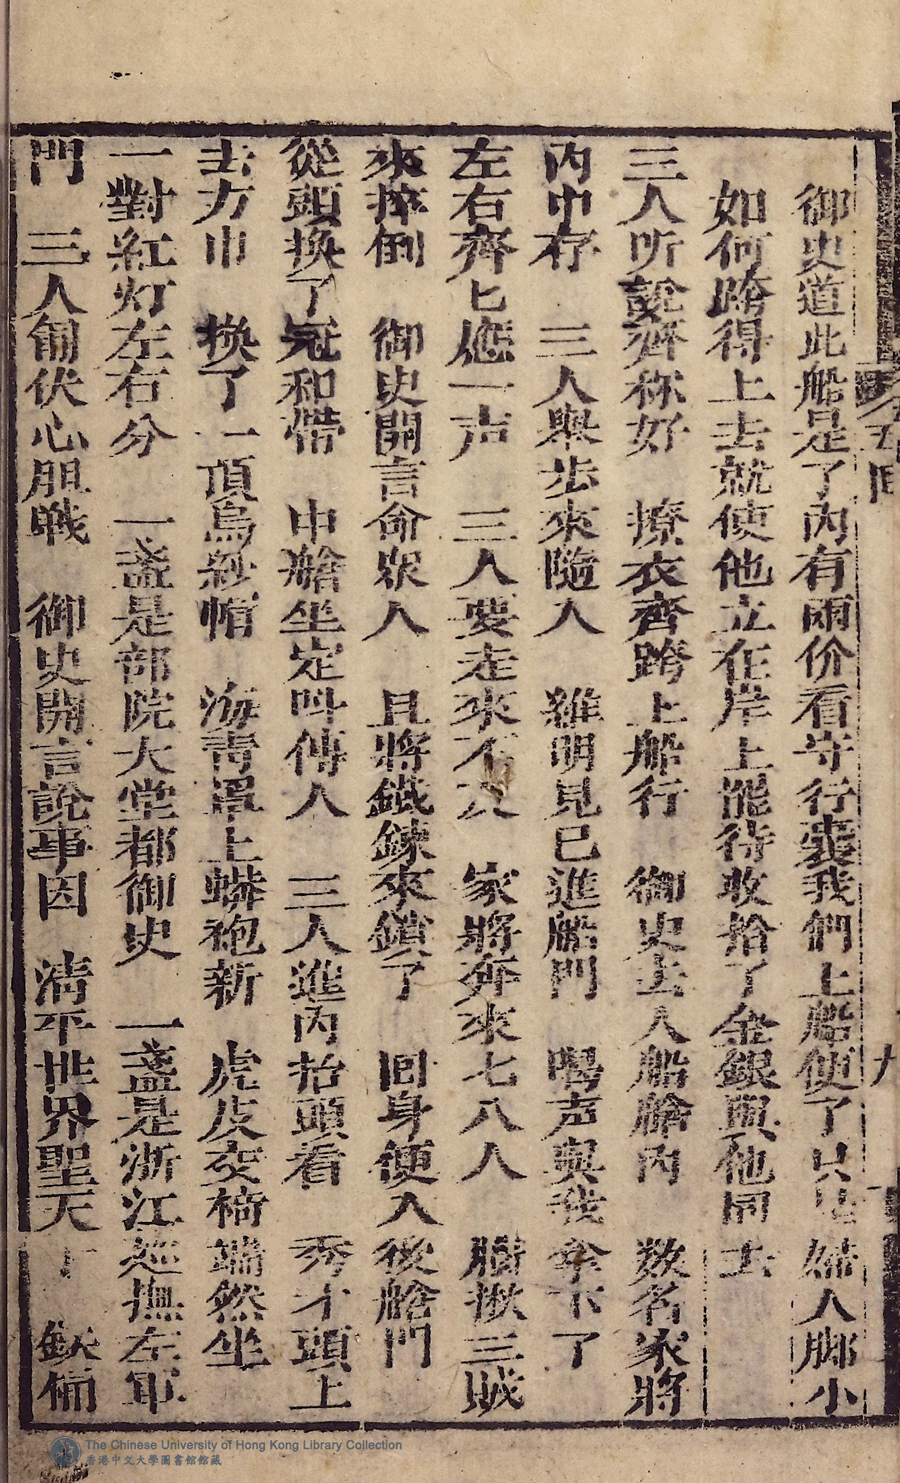 五回
九
御史道此船是了內有兩价看守行襄我們上船便了只 婦人脚小
如何跨得上去就使他立在岸上罷待收拾了金銀與他同去
三人听說齊称好 撩衣齊跨上船行 御史去入船艙內 数名家將
內中存 三人舉步來隨入 維明見已進船門 喝声與我拿下了
左右齊匕應一声 三人要走來不及 家將奔來七八人 揪三賊
來摔倒 御史開言命眾人 且將鐵鍊來鎖了 回身便入後艙門
從頭換了冠和帶 中艙坐定呌傳人 三人進內抬頭看 秀才頭上
去方巾 換了一頂烏紗帽 海青 上蟒袍新 虎皮交椅端然坐
一對紅灯左右分 一盞是部院大堂都御史 一盞是浙江廵撫左軍
門 三人匍伏心胆戰 御史開言說事因 清平世界聖天下 欽
The Chinese University of Hong Kong Library Collection
香港中文大學圖書館館藏